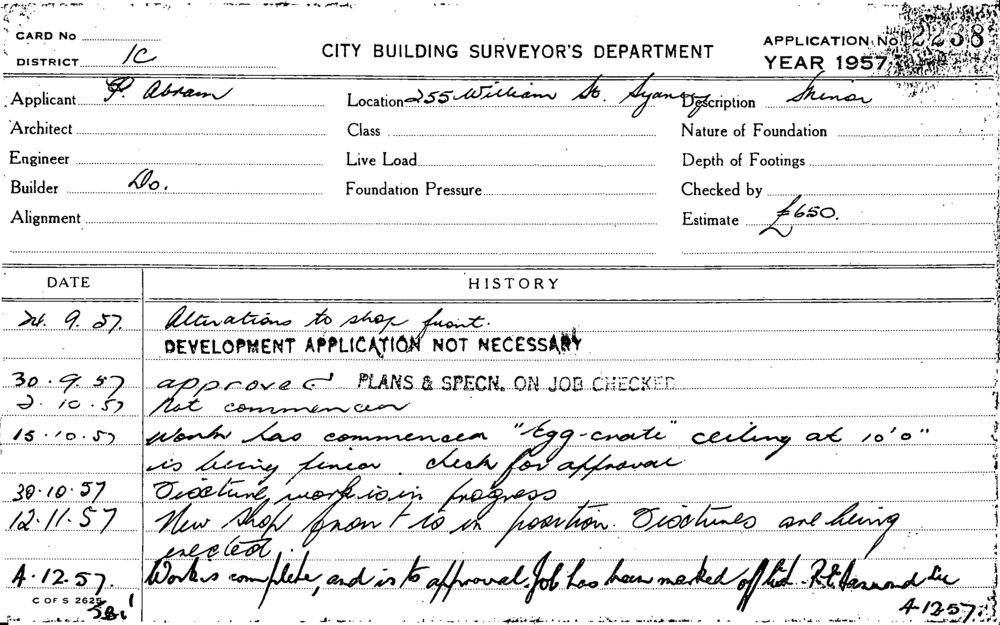 CARD No
DISTRICT 1C
CITY BUILDING SURVEYOR'S DEPARTMENT
APPLICATION No 2238
YEAR 1957
Applicant P. Abram
Location 255 William St. Sydney
Description Minor
Architect
Class
Nature of Foundation
Engineer
Live Load
Depth of Footings
Builder Do.
Foundation Pressure
Checked by
Alignment
Estimate £650.
DATE HISTORY
24. 9. 57. Alterations to shop front.
DEVELOPMENT APPLICATION NOT NECESSARY
30. 9. 57 approved PLANS & SPECN. ON JOB CHECKED
2. 10. 57 Not commenced
15. 10. 57 Work has commenced "Egg-crate" ceiling at 10'0"
is being fixed. check for approval
30.10.57 Fixture work is in progress
12.11.57 New shop front is in position. Fixtures are being
erected.
4.12.57. Work is complete, and is to approval. Job has been marked off list.
C OF S 2625
4.12.57